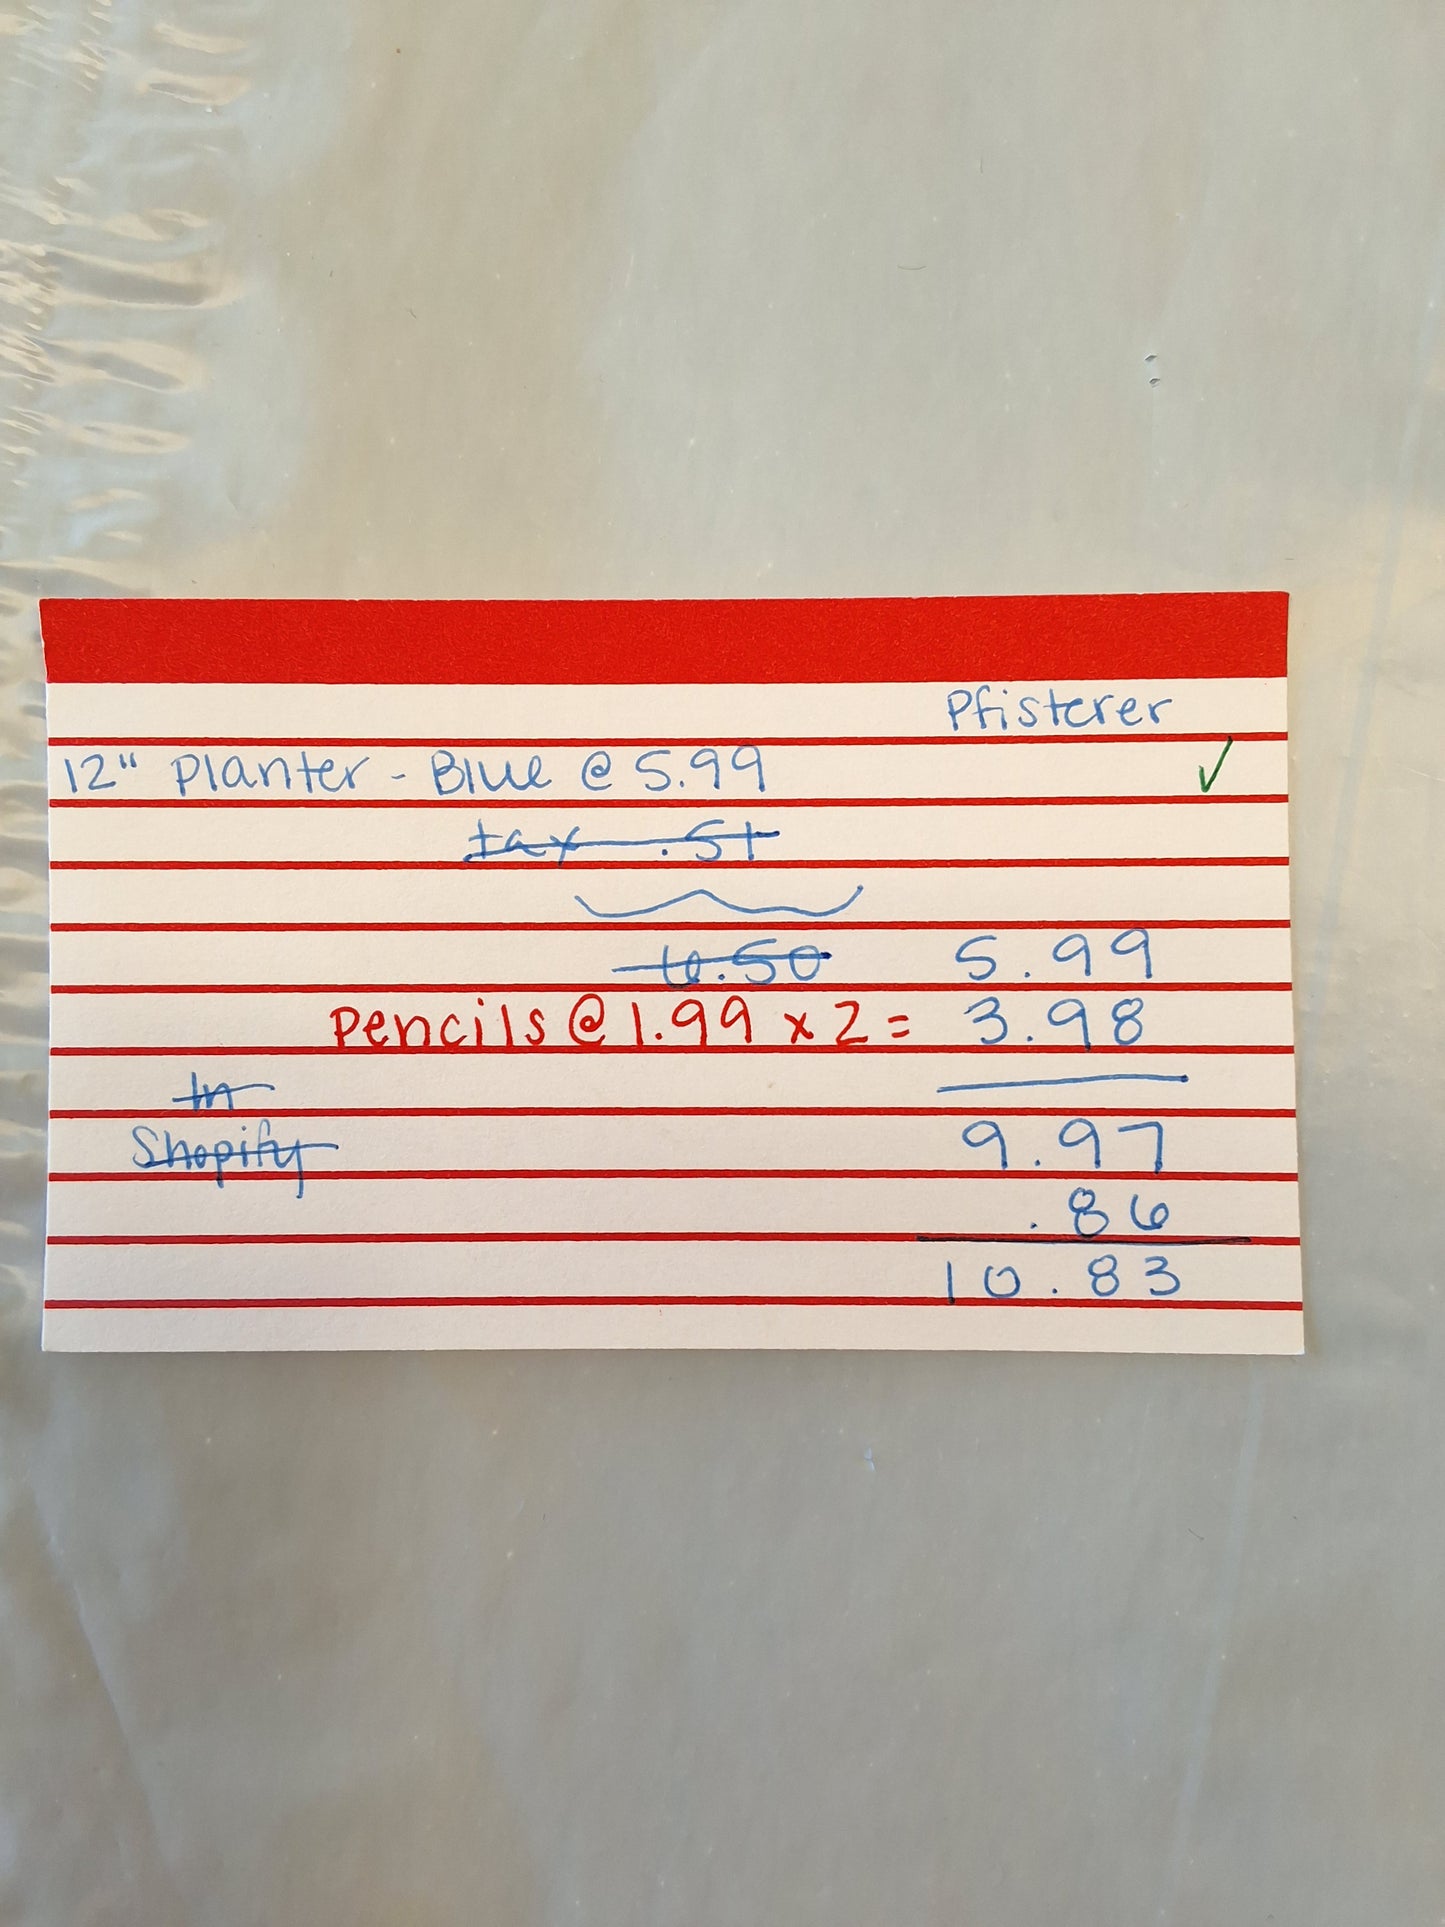 Pfisterer
12" Planter - Blue @ 5.99 ✓
tax .51
6.50 5.99
Pencils @ 1.99 x 2 = 3.98
In
Shopify 9.97
.86
10.83